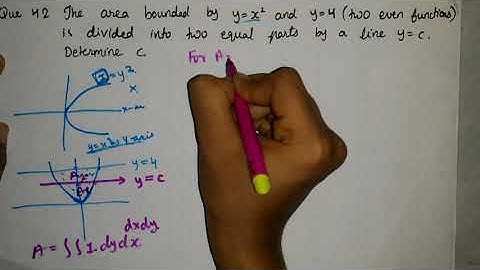 Que 42 The area bounded by y=x² and y=4 (two even functions)
is divided into two equal parts by a line y=c.
Determine c.
For A₂
x=y²
x
y=x² as y axis
y=4
A₂
y=c
A₁
dxdy
A = ∫∫1.dydx